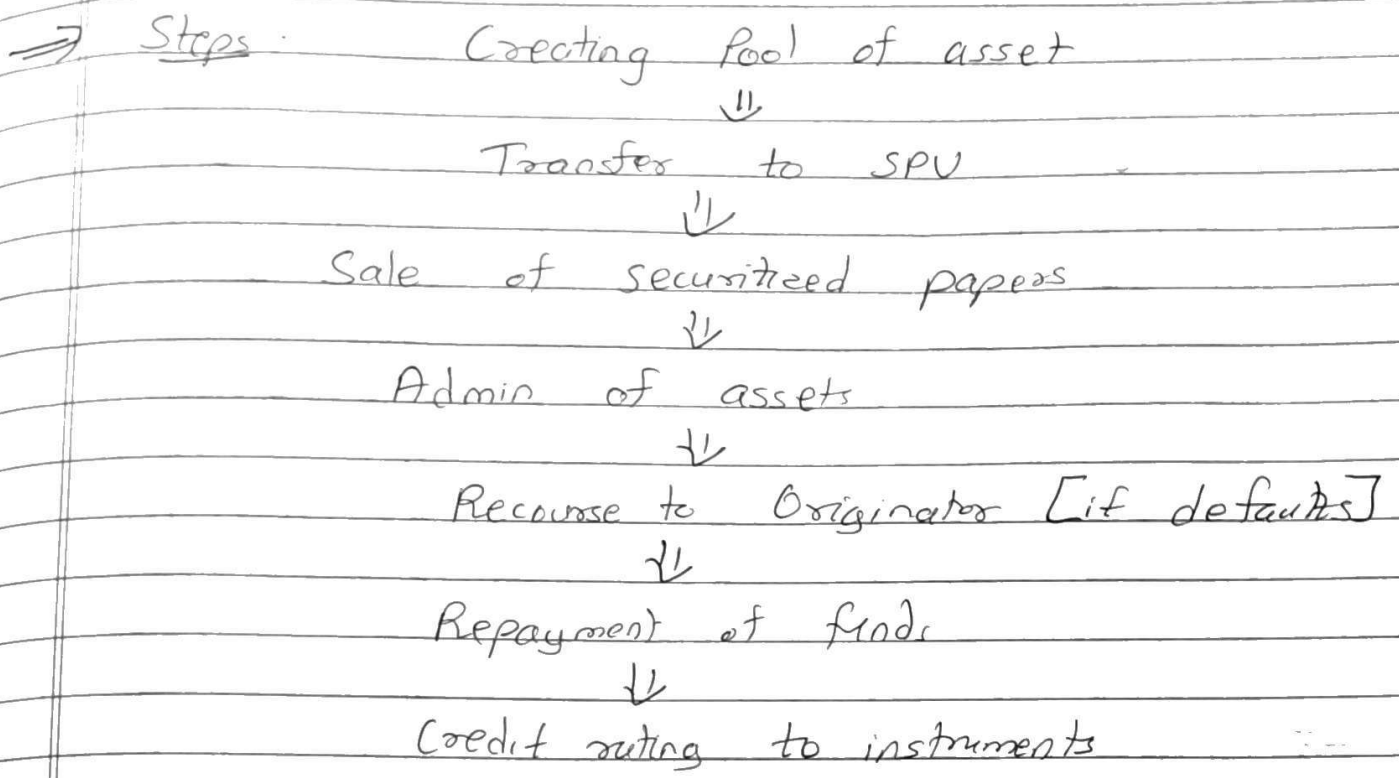 ⇒ Steps. Creating Pool of asset
⇓
Transfer to SPU
⇓
Sale of securitized papers
⇓
Admin of assets
⇓
Recourse to Originator [if defaults]
⇓
Repayment of funds
⇓
Credit rating to instruments